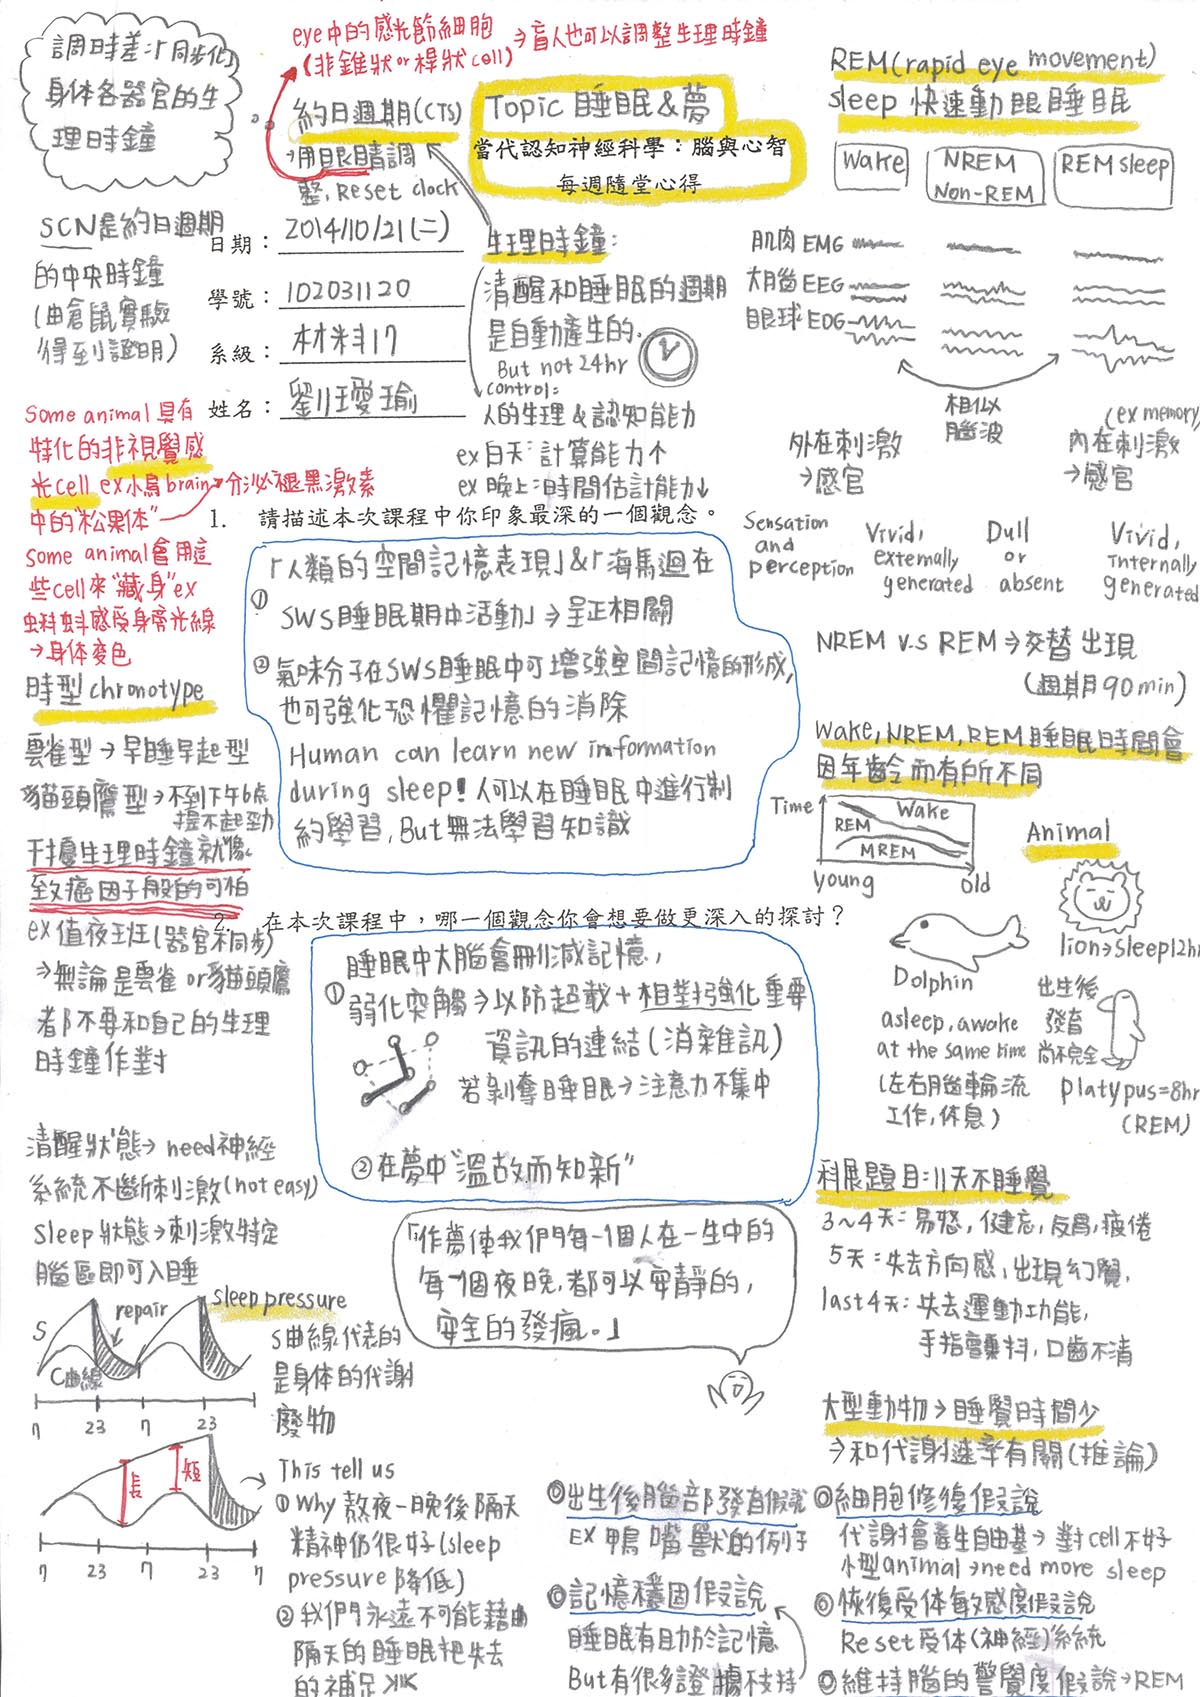 調時差:「同步化」
身体各器官的生
理時鐘
eye中的感光節細胞
(非錐狀or桿狀cell)
⇒盲人也可以調整生理時鐘
約日週期(CTS)
→用眼睛調
整, Reset clock
Topic 睡眠&夢
當代認知神經科學：腦與心智
每週隨堂心得
日期： 2014/10/21(二)
學號： 102031120
系級： 材料17
姓名： 劉璦瑜
SCN是約日週期
的中央時鐘
(由倉鼠實驗
得到證明)
生理時鐘:
清醒和睡眠的週期
是自動產生的.
But not 24hr
control:
人的生理&認知能力
ex 白天:計算能力个
ex 晚上:時間估計能力↓
Some animal 具有
特化的非視覺感
光cell ex小鳥brain
中的"松果体"
→分泌褪黑激素
Some animal會用這
些cell來"藏身"ex
蝌蚪感受身旁光線
→身体變色
時型chronotype
雲雀型→早睡早起型
貓頭鷹型→不到下午6点
提不起勁
干擾生理時鐘就像
致癌因子般的可怕
ex值夜班(器官不同步)
⇒無論是雲雀or貓頭鷹
都不要和自己的生理
時鐘作對
清醒狀態→need神經
系統不斷刺激(not easy)
Sleep狀態→刺激特定
腦區即可入睡
repair
sleep pressure
S
C曲線
7 23 7 23
S曲線代表的
是身体的代謝
廢物
長
短
7 23 7 23 7
This tell us
①Why熬夜一晚後隔天
精神仍很好(sleep
pressure降低)
②我們永遠不可能藉由
隔天的睡眠把失去
的補足
1. 請描述本次課程中你印象最深的一個觀念。
①「人類的空間記憶表現」&「海馬迴在
SWS睡眠期中活動」⇒呈正相關
②氣味分子在SWS睡眠中可增強空間記憶的形成,
也可強化恐懼記憶的消除
Human can learn new information
during sleep! 人可以在睡眠中進行制
約學習, But無法學習知識
2. 在本次課程中，哪一個觀念你會想要做更深入的探討？
①睡眠中大腦會刪減記憶,
弱化突觸⇒以防超載+相對強化重要
資訊的連結(消雜訊)
若剝奪睡眠→注意力不集中
②在夢中"溫故而知新"
「作夢使我們每一個人在一生中的
每一個夜晚,都可以安靜的,
安全的發瘋。」
REM(rapid eye movement)
sleep 快速動眼睡眠
Wake
NREM
Non-REM
REM sleep
肌肉EMG
大腦EEG
眼球EOG
相似
腦波
外在刺激
→感官
(ex memory)
內在刺激
→感官
Sensation
and
perception
Vivid,
externally
generated
Dull
or
absent
Vivid,
internally
generated
NREM v.s REM⇒交替出現
(週期90min)
Wake, NREM, REM睡眠時間會
因年齡而有所不同
Time
Wake
REM
MREM
young old
Animal
lion→Sleep12hr
Dolphin
asleep, awake
at the same time
(左右腦輪流
工作,休息)
出生後
發育
尚不完全
platypus=8hr
(REM)
科展題目:11天不睡覺
3~4天:易怒,健忘,反胃,疲倦
5天:失去方向感,出現幻覺,
last4天:失去運動功能,
手指顫抖,口齒不清
大型動物→睡覺時間少
⇒和代謝速率有關(推論)
◎出生後腦部發育假說
EX 鴨嘴獸的例子
◎記憶穩固假說
睡眠有助於記憶
But有很多證據不支持
◎細胞修復假說
代謝會產生自由基→對cell不好
小型animal→need more sleep
◎恢復受体敏感度假說
Reset受体(神經)系統
◎維持腦的警覺度假說→REM